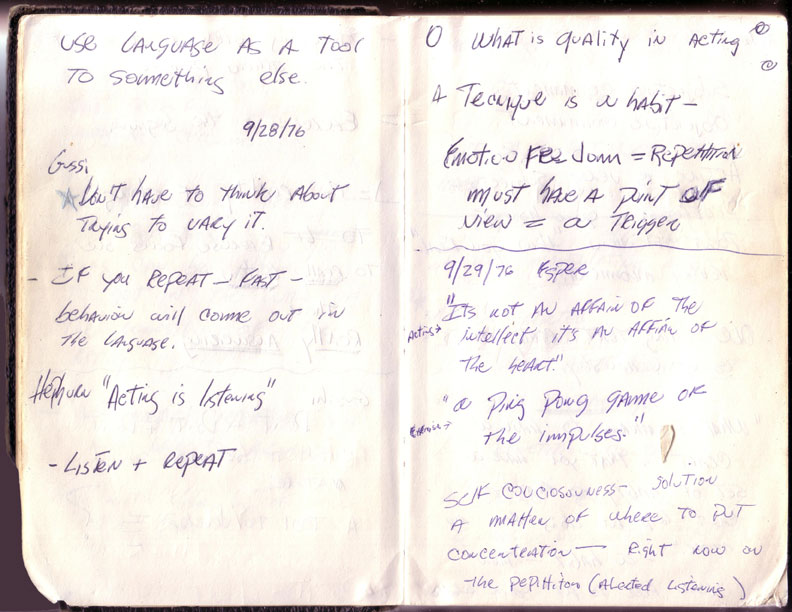 USE LANGUAGE AS A TOOL
TO Something else.
9/28/76
Don't have to think About
Trying to VARY it.
- IF you REPEAT - FAST -
behavior will come out in
the language.
Hepburn "Acting is listening"
- LISTEN + REPEAT
O What is quality in Acting
A Technique is a habit -
= Repetition
must have A point OF
view = a Trigger
9/29/76 Esper
"It's not AN AFFAIR OF The
Acting→ intellect it's AN AFFAIR OF
The heart."
"a ping pong game of
Exercise→ the impulses."
Self conciousness - solution
A matter of where to put
concentration - Right now on
the (Alected Listening)